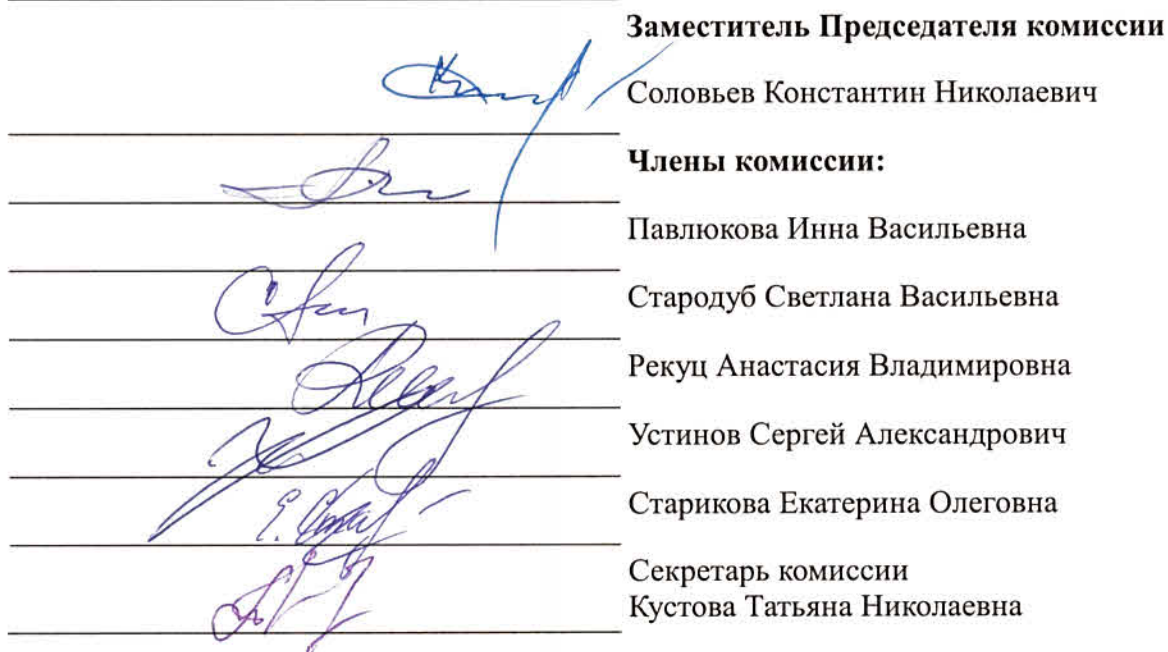 Заместитель Председателя комиссии
Соловьев Константин Николаевич
Члены комиссии:
Павлюкова Инна Васильевна
Стародуб Светлана Васильевна
Рекуц Анастасия Владимировна
Устинов Сергей Александрович
Старикова Екатерина Олеговна
Секретарь комиссии
Кустова Татьяна Николаевна